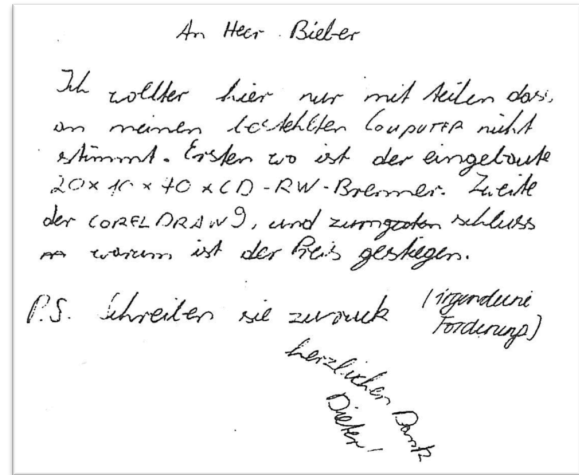 An Herr Bieber
Ich wollter hier nur mit teilen das,
an meinen bestehlten COMPUTER nicht
stimmt. Ersten wo ist der eingebaute
20x10x40xCD-RW-Brenner. Zweite
der CORELDRAW9, und zumguten schluss
warum ist der Preis gestiegen.
P.S. Schreiben sie zurück (irgendeine
Forderung)
herzlichen Dank
Dieter!